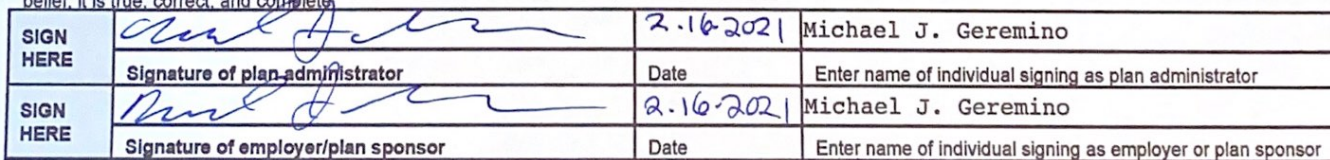 belief, it is true, correct, and complete.
SIGN HERE 2.16-2021 Michael J. Geremino
Signature of plan administrator Date Enter name of individual signing as plan administrator
SIGN HERE 2.16-2021 Michael J. Geremino
Signature of employer/plan sponsor Date Enter name of individual signing as employer or plan sponsor